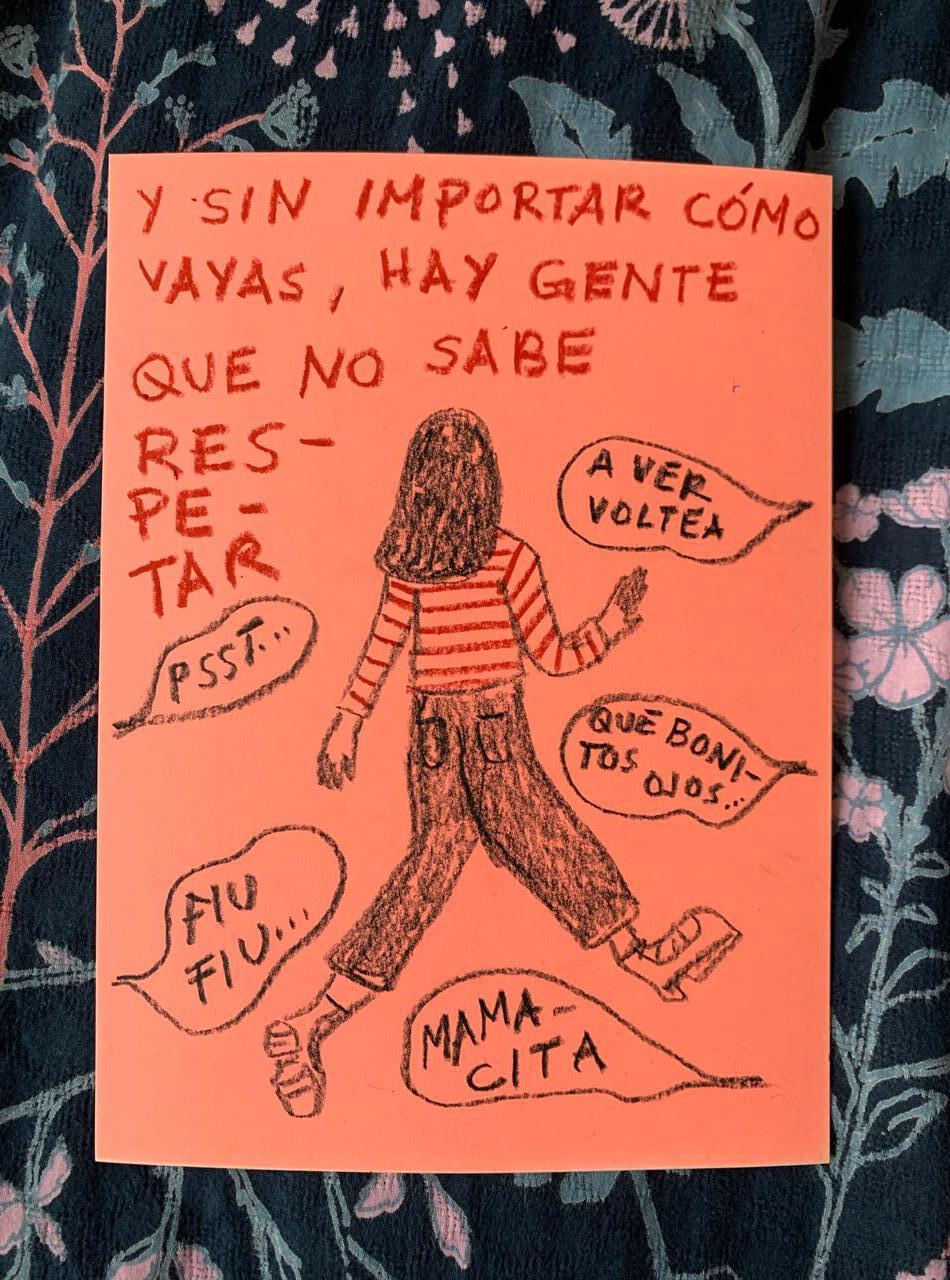 Y SIN IMPORTAR CÓMO
VAYAS, HAY GENTE
QUE NO SABE
RES-
PE-
TAR
A VER
VOLTEA
PSST...
QUÉ BONI-
TOS OJOS...
FIU
FIU...
MAMA-
CITA